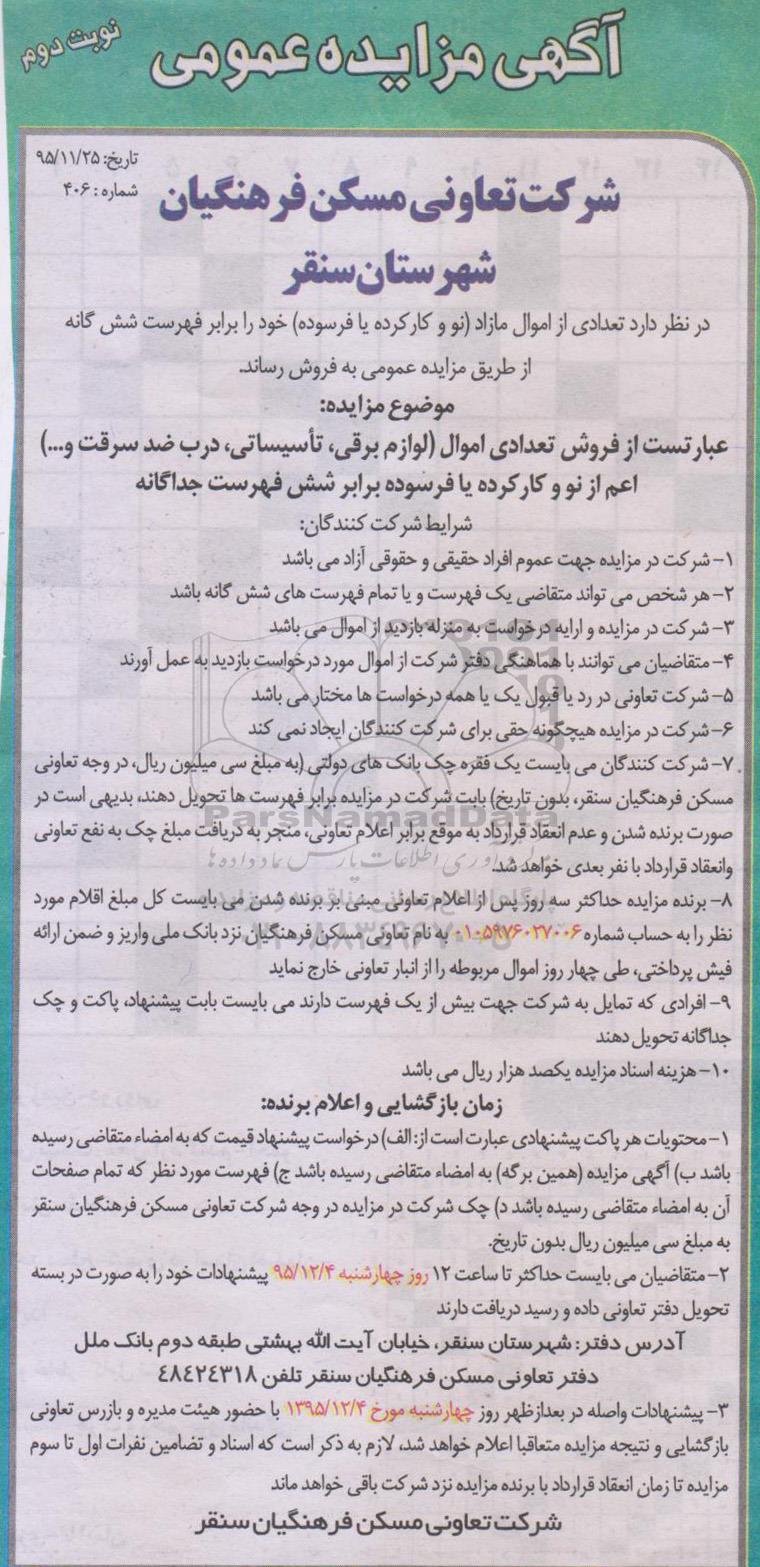 آگهی مزایده عمومی
نوبت دوم
تاریخ: ۹۵/۱۱/۲۵
شماره: ۴۰۶
شرکت تعاونی مسکن فرهنگیان
شهرستان سنقر
در نظر دارد تعدادی از اموال مازاد (نو و کارکرده یا فرسوده) خود را برابر فهرست شش گانه
از طریق مزایده عمومی به فروش رساند.
موضوع مزایده:
عبارتست از فروش تعدادی اموال (لوازم برقی، تأسیساتی، درب ضد سرقت و...)
اعم از نو و کارکرده یا فرسوده برابر شش فهرست جداگانه
شرایط شرکت کنندگان:
۱- شرکت در مزایده جهت عموم افراد حقیقی و حقوقی آزاد می باشد
۲- هر شخص می تواند متقاضی یک فهرست و یا تمام فهرست های شش گانه باشد
۳- شرکت در مزایده و ارایه درخواست به منزله بازدید از اموال می باشد
۴- متقاضیان می توانند با هماهنگی دفتر شرکت از اموال مورد درخواست بازدید به عمل آورند
۵- شرکت تعاونی در رد یا قبول یک یا همه درخواست ها مختار می باشد
۶- شرکت در مزایده هیچگونه حقی برای شرکت کنندگان ایجاد نمی کند
۷- شرکت کنندگان می بایست یک فقره چک بانک های دولتی (به مبلغ سی میلیون ریال، در وجه تعاونی
مسکن فرهنگیان سنقر، بدون تاریخ) بابت شرکت در مزایده برابر فهرست ها تحویل دهند، بدیهی است در
ParsNamadData
صورت برنده شدن و عدم انعقاد قرارداد به موقع برابر اعلام تعاونی، منجر به دریافت مبلغ چک به نفع تعاونی
وانعقاد قرارداد با نفر بعدی خواهد شد.
۸- برنده مزایده حداکثر سه روز پس از اعلام تعاونی مبنی بر برنده شدن می بایست کل مبلغ اقلام مورد
نظر را به حساب شماره ۰۱۰۵۹۷۶۰۲۷۰۰۶ به نام تعاونی مسکن فرهنگیان نزد بانک ملی واریز و ضمن ارائه
فیش پرداختی، طی چهار روز اموال مربوطه را از انبار تعاونی خارج نماید
۹- افرادی که تمایل به شرکت جهت بیش از یک فهرست دارند می بایست بابت پیشنهاد، پاکت و چک
جداگانه تحویل دهند
۱۰- هزینه اسناد مزایده یکصد هزار ریال می باشد
زمان بازگشایی و اعلام برنده:
۱- محتویات هر پاکت پیشنهادی عبارت است از: الف) درخواست پیشنهاد قیمت که به امضاء متقاضی رسیده
باشد ب) آگهی مزایده (همین برگه) به امضاء متقاضی رسیده باشد ج) فهرست مورد نظر که تمام صفحات
آن به امضاء متقاضی رسیده باشد د) چک شرکت در مزایده در وجه شرکت تعاونی مسکن فرهنگیان سنقر
به مبلغ سی میلیون ریال بدون تاریخ.
۲- متقاضیان می بایست حداکثر تا ساعت ۱۲ روز چهارشنبه ۹۵/۱۲/۴ پیشنهادات خود را به صورت در بسته
تحویل دفتر تعاونی داده و رسید دریافت دارند
آدرس دفتر: شهرستان سنقر، خیابان آیت الله بهشتی طبقه دوم بانک ملل
دفتر تعاونی مسکن فرهنگیان سنقر تلفن ۴۸۴۲۴۳۱۸
۳- پیشنهادات واصله در بعدازظهر روز چهارشنبه مورخ ۱۳۹۵/۱۲/۴ با حضور هیئت مدیره و بازرس تعاونی
بازگشایی و نتیجه مزایده متعاقبا اعلام خواهد شد، لازم به ذکر است که اسناد و تضامین نفرات اول تا سوم
مزایده تا زمان انعقاد قرارداد با برنده مزایده نزد شرکت باقی خواهد ماند
شرکت تعاونی مسکن فرهنگیان سنقر